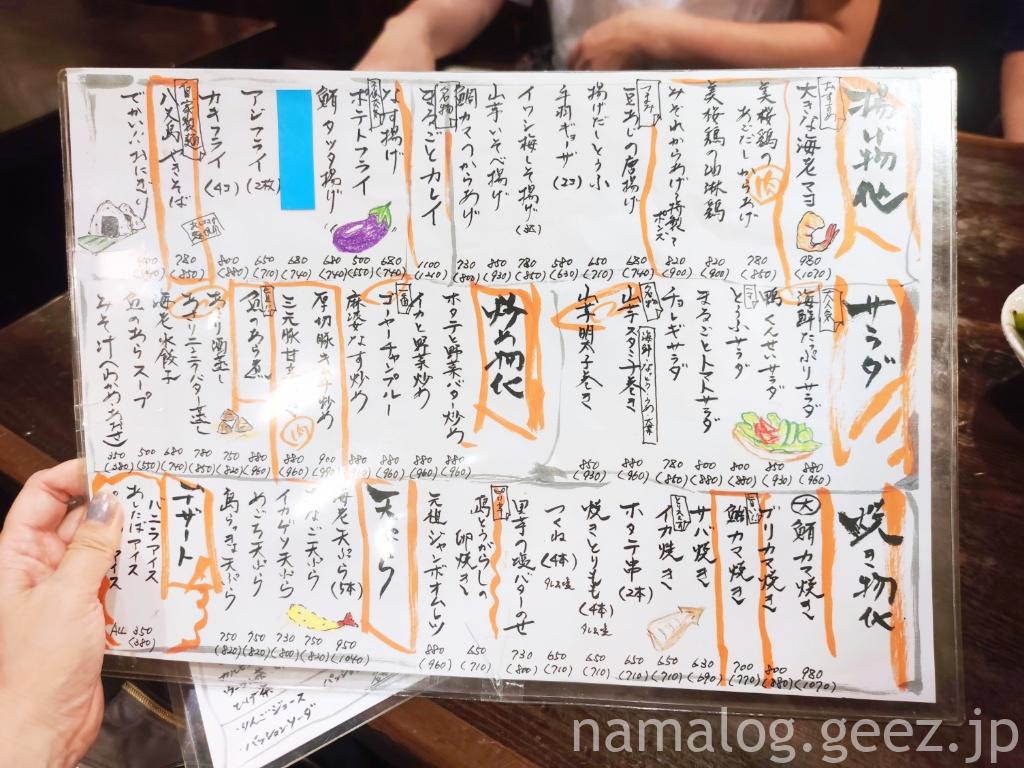 揚げ物他
おすすめ
大きな海老マヨ
980
(1070)
美桜鶏の
あごだしからあげ
肉
780
(850)
美桜鶏の油淋鶏
820
(900)
みぞれからあげ特製
ポンズ
820
(900)
つまみ
豆あじの唐揚げ
680
(740)
揚げだしとうふ
650
(710)
手羽ギョーザ
(2コ)
580
(630)
イワシ梅しそ揚げ
780
(850)
山芋いそべ揚げ
850
(930)
鯛カマのからあげ
730
(800)
名物
まるごとカレイ
1100
(1210)
なす揚げ
680
(740)
ポテトフライ
500
(550)
鮪タッタ揚げ
680
(740)
680
(740)
アジフライ
(2枚)
650
(710)
カキフライ
(4コ)
800
(880)
自家製麺
八丈島やきそば
780
(850)
でかいいおにぎり
サラダ
海鮮たっぷりサラダ
880
(960)
鴨くんせいサラダ
850
(930)
とうふサラダ
800
(880)
まるごとトマトサラダ
800
(880)
チョレギサラダ
780
(860)
名物
山芋スタミナ巻き
880
(960)
山芋明太子巻き
850
(930)
炒め物他
ホタテと野菜バター炒め
880
(960)
イカと野菜炒め
880
(960)
ゴーヤーチャンプルー
880
(960)
麻婆なす炒め
厚切豚キムチ炒め
900
(990)
三元豚甘
肉
880
(960)
魚のあら煮
880
(960)
あさり酒蒸し
750
(820)
あさりニンニクバター蒸し
780
(850)
海老水餃子
680
(740)
魚のあらスープ
500
(550)
みそ汁(わかめ・あおさ)
350
(380)
焼き物他
大 鮪カマ焼き
980
(1070)
ブリカマ焼き
800
(880)
鯛カマ焼き
700
(770)
サバ焼き
630
(690)
イカ焼き
650
(710)
ホタテ串
(2本)
650
(710)
焼きとりもも
(4本)
タレ or 塩
650
(710)
つくね
(4本)
タレ or 塩
650
(710)
里芋の塩バターのせ
730
(800)
島とうがらしの
卵焼き
650
(710)
元祖ジャンボオムレツ
880
(960)
天ぷら
海老天ぷら
(5本)
950
(1040)
あなご天ぷら
750
(820)
イカゲソ天ぷら
730
(800)
めごち天ぷら
750
(820)
島らっきょ天ぷら
750
(820)
デザート
バニラアイス
あしたばアイス
アイス
ALL
350
(380)
りんごジュース
パッションソーダ
namalog.geez.jp